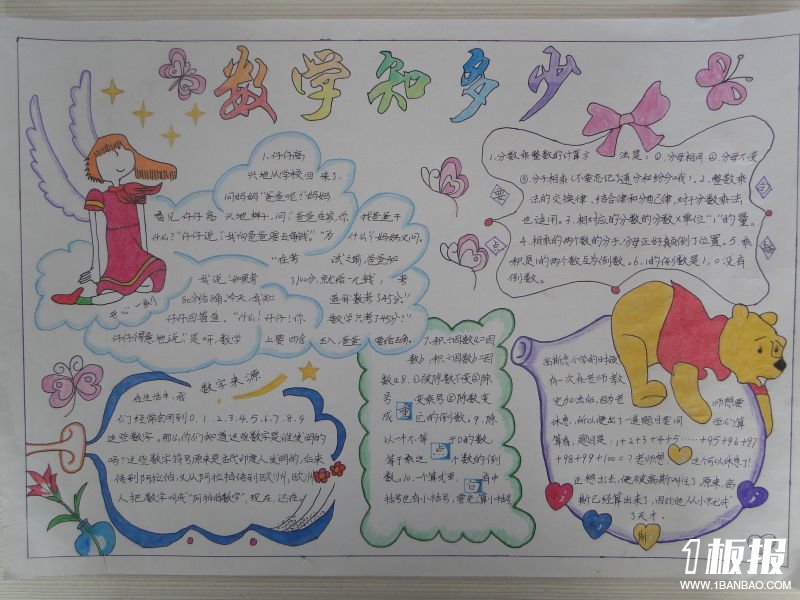 数学知多少
1.仔仔高
兴地从学校回来了,
问妈妈“爸爸呢?”妈妈
看见仔仔高兴地样子,问:“爸爸在家,你找爸爸干
什么?”仔仔说:“我向爸爸要五角钱。”“为什么?”妈妈又问。
“在考试之前,爸爸和
我说,‘如果考100分,就给一元钱,考
80分给8角,今天,我知道我数考345分。”
仔仔回答道。“什么!仔仔!你数学只考345分?”
仔仔得意地说:“是呀,数学上要四舍五入,爸爸要给五角。
开心一刻
1.分数乘整数的计算方法是:①.分母相同②.分母不变
③.分子相乘(不要忘记了通分和约分哦!)2.整数乘
法的交换律、结合律和分配律,对于分数乘法
也适用。3.相对应的分数的分数×单位“1”的量。
4.相乘的两个数的分子,分母正好颠倒了位置。5.乘
积是1的两个数互为倒数。6.1的倒数是1,0没有
倒数。
数字来源
在生活中,我
们经常会用到0.1.2.3.4.5.6.7.8.9
这些数字。那么你们知道这些数字是谁发明的
吗?这些数字符号原来是古代印度人发明的,后来
传到阿拉伯,又从阿拉伯传到欧洲,欧洲
人把数字叫成“阿拉伯数字”,现在,还在
7.积÷因数a=因
数b 积÷因数b=因
数a 8.①被除数不变②除
号变乘号③除数变
成它的倒数。9.除
以一个不等于0的数,
等于乘这个数的倒
数。10.一个算式里,
括号也有小括号,要先算小括号
重
点
高斯念小学的时候
有一次在老师教
完加法后,因为老师想要
休息,所以便出了一道题目要同学们算
算看,题目是:1+2+3+4+5……+95+96+97
+98+99+100=?老师想,这个可以休息了!
正想出去,便被高斯叫住了,原来,高
斯已经算出来了,因此他从小书七年
了天才。
1板报
WWW.1BANBAO.COM